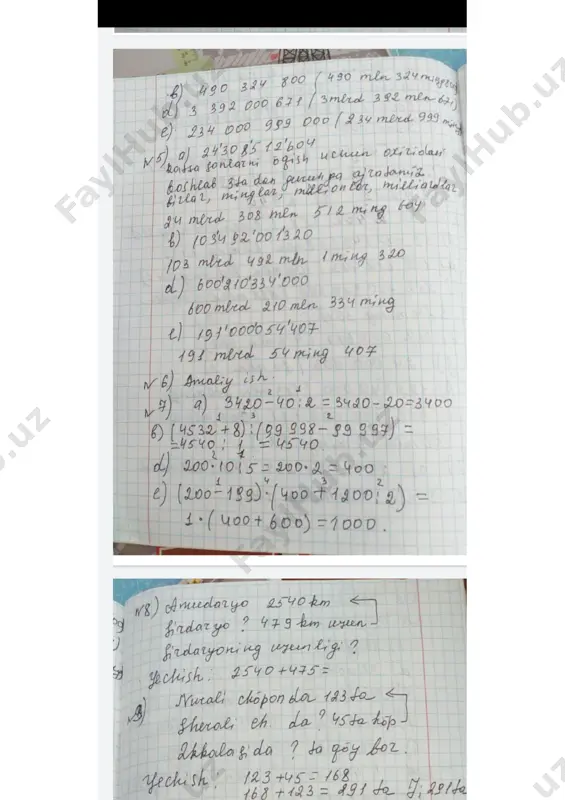 b) 490 324 800 (490 mln 324 ming
d) 3 392 000 671 (3 mlrd 392 mln 671)
e) 234 000 999 000 (234 mlrd 999 ming
N5) a) 24'308'512'604
sonlarni o'qish uchun oxiridan
boshlab 3ta dan guruhga ajratamiz
birlar, minglar, millionlar, milliardlar,
24 mlrd 308 mln 512 ming 604
b) 103'492'001'320
103 mlrd 492 mln 1 ming 320
d) 600'210'334'000
600 mlrd 210 mln 334 ming
e) 191'000'054'407
191 mlrd 54 ming 407
N6) Amaliy ish
N7) a) 3420-40:2=3420-20=3400
b) (4532+8):(99 998-99 997)=
=4540:1=4540
d) 200·10:5=200·2=400
e) (200-199)·(400+1200:2)=
1·(400+600)=1000.
N8) Amudaryo 2540 km
Sirdaryo ? 479 km uzun
Sirdaryoning uzunligi ?
Yechish: 2540+475=
N9) Nurali chopon da 123 ta
Sherali ch. da ? 45 ta ko'p
Ikkalasida ? ta qo'y bor.
Yechish: 123+45=168
168+123=291 ta J: 291 ta
FaylHub.uz